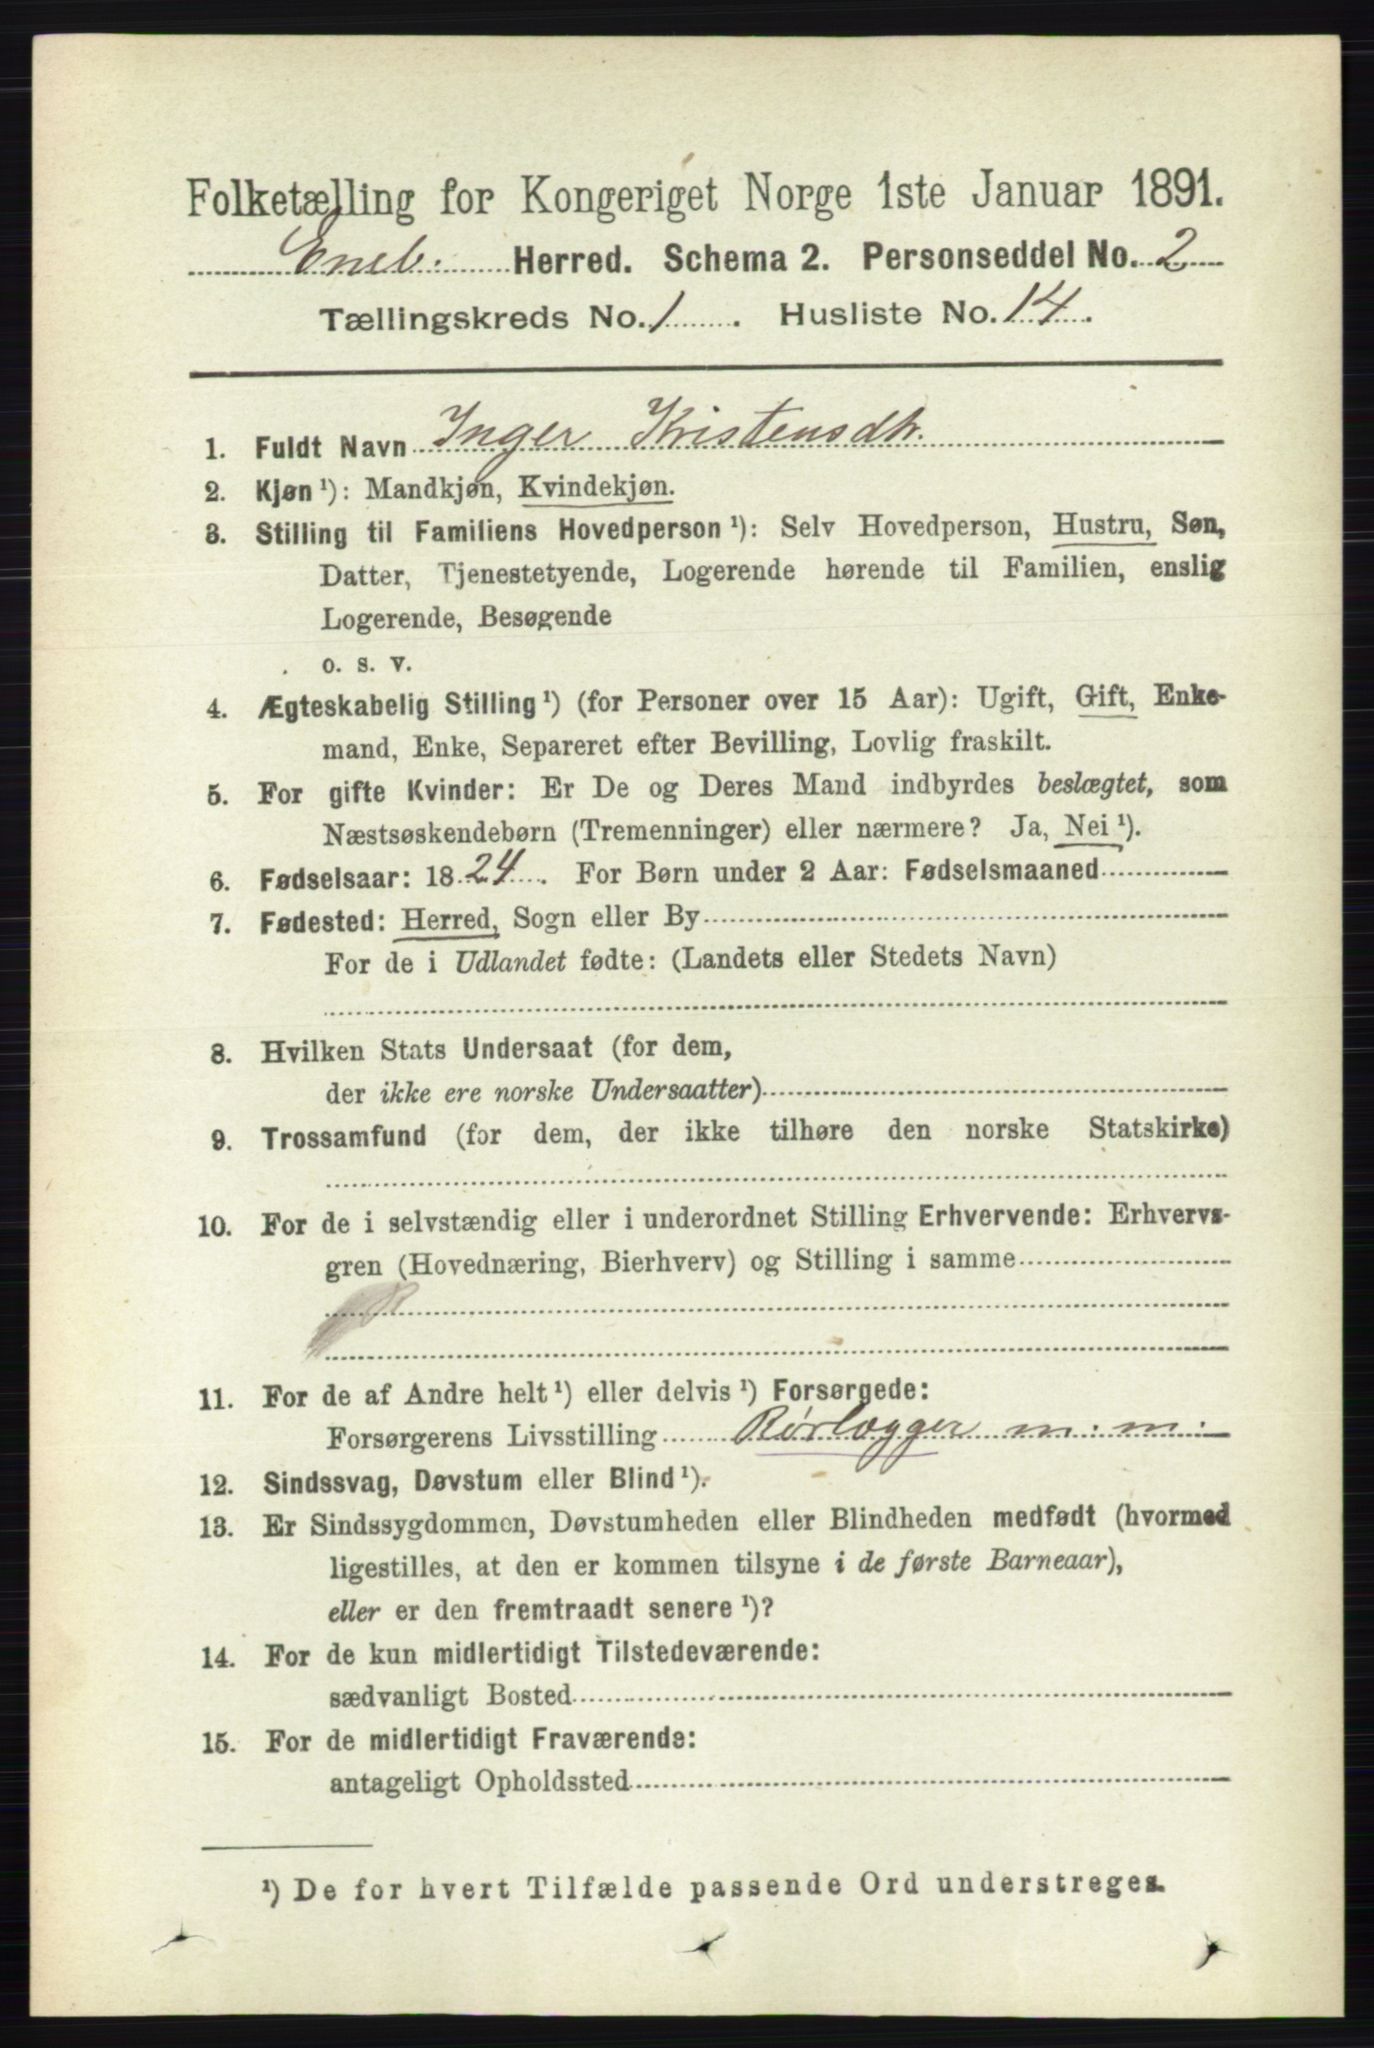 Folketælling for Kongeriget Norge 1ste Januar 1891.
Eneb. Herred. Schema 2. Personseddel No. 2
Tællingskreds No. 1. Husliste No. 14.
1. Fuldt Navn Inger Kristensdtr.
2. Kjøn ¹): Mandkjøn, Kvindekjøn.
3. Stilling til Familiens Hovedperson ¹): Selv Hovedperson, Hustru, Søn,
Datter, Tjenestetyende, Logerende hørende til Familien, enslig
Logerende, Besøgende
o. s. v.
4. Ægteskabelig Stilling ¹) (for Personer over 15 Aar): Ugift, Gift, Enke-
mand, Enke, Separeret efter Bevilling, Lovlig fraskilt.
5. For gifte Kvinder: Er De og Deres Mand indbyrdes beslægtet, som
Næstsøskendebørn (Tremenninger) eller nærmere? Ja, Nei ¹).
6. Fødselsaar: 1824. For Børn under 2 Aar: Fødselsmaaned
7. Fødested: Herred, Sogn eller By
For de i Udlandet fødte: (Landets eller Stedets Navn)
8. Hvilken Stats Undersaat (for dem,
der ikke ere norske Undersaatter)
9. Trossamfund (for dem, der ikke tilhøre den norske Statskirke)
10. For de i selvstændig eller i underordnet Stilling Erhvervende: Erhvervs-
gren (Hovednæring, Bierhverv) og Stilling i samme
11. For de af Andre helt ¹) eller delvis ¹) Forsørgede:
Forsørgerens Livsstilling Rørlægger m. m.
12. Sindssvag, Døvstum eller Blind ¹).
13. Er Sindssygdommen, Døvstumheden eller Blindheden medfødt (hvormed
ligestilles, at den er kommen tilsyne i de første Barneaar),
eller er den fremtraadt senere ¹)?
14. For de kun midlertidigt Tilstedeværende:
sædvanligt Bosted
15. For de midlertidigt Fraværende:
antageligt Opholdssted
¹) De for hvert Tilfælde passende Ord understreges.